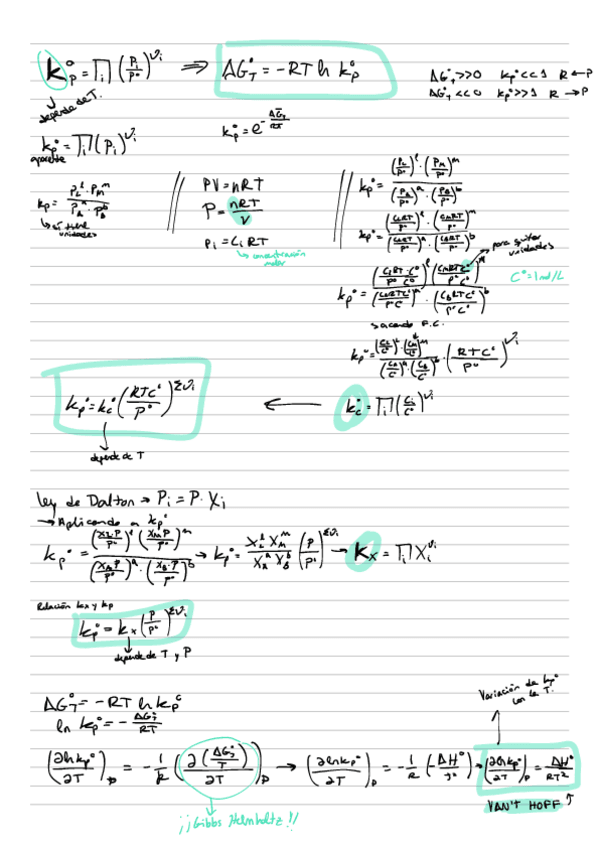 K°p = ∏i (Pi/P°)^νi ⇒ ΔG°T = -RT ln k°p
ΔG°T >> 0 kp° << 1 R ← P
ΔG°T << 0 kp° >> 1 R → P
depende de T.
k°p = e^-ΔG°T/RT
kp° = ∏i (Pi)^νi
aparente
kp = PL^l · PM^m / PA^a · PB^b
↳ sí tiene unidades
PV = nRT
P = nRT/V
Pi = Ci RT
↳ concentración molar
kp° = (PL/P°)^l · (PM/P°)^m / (PA/P°)^a · (PB/P°)^b
kp° = (CLRT/P°)^l · (CMRT/P°)^m / (CART/P°)^a · (CBRT/P°)^b
para quitar unidades
C° = 1 mol/L
kp° = (CLRT C°/P° C°)^l (CMRT C°/P° C°)^m / (CART C°/P° C°)^a · (CBRT C°/P° C°)^b
→ sacando F.C.
kp° = (CL/C°)^l · (CM/C°)^m / (CA/C°)^a · (CB/C°)^b · (RTC°/P°)^νi
kp° = kc° (RTC°/P°)^Σνi ← kc° = ∏i (Ci/C°)^νi
depende de T
ley de Dalton → Pi = P · Xi
→ Aplicando a kp°
kp° = (XL P/P°)^l (XM P/P°)^m / (XA P/P°)^a · (XB · P/P°)^b → kp° = XL^l XM^m / XA^a XB^b (P/P°)^Σνi → Kx = ∏i Xi^νi
Relación kx y kp
kp° = kx (P/P°)^Σνi
depende de T y P
Variación de kp° con la T.
ΔG°T = -RT ln kp°
ln kp° = -ΔG°T/RT
(∂ln kp°/∂T)p = -1/R (∂(ΔG°T/T)/∂T)p → (∂ln kp°/∂T)p = -1/R (-ΔH°/T²) → (∂ln kp°/∂T)p = ΔH°/RT²
VAN'T HOFF
¡¡Gibbs Helmholtz!!